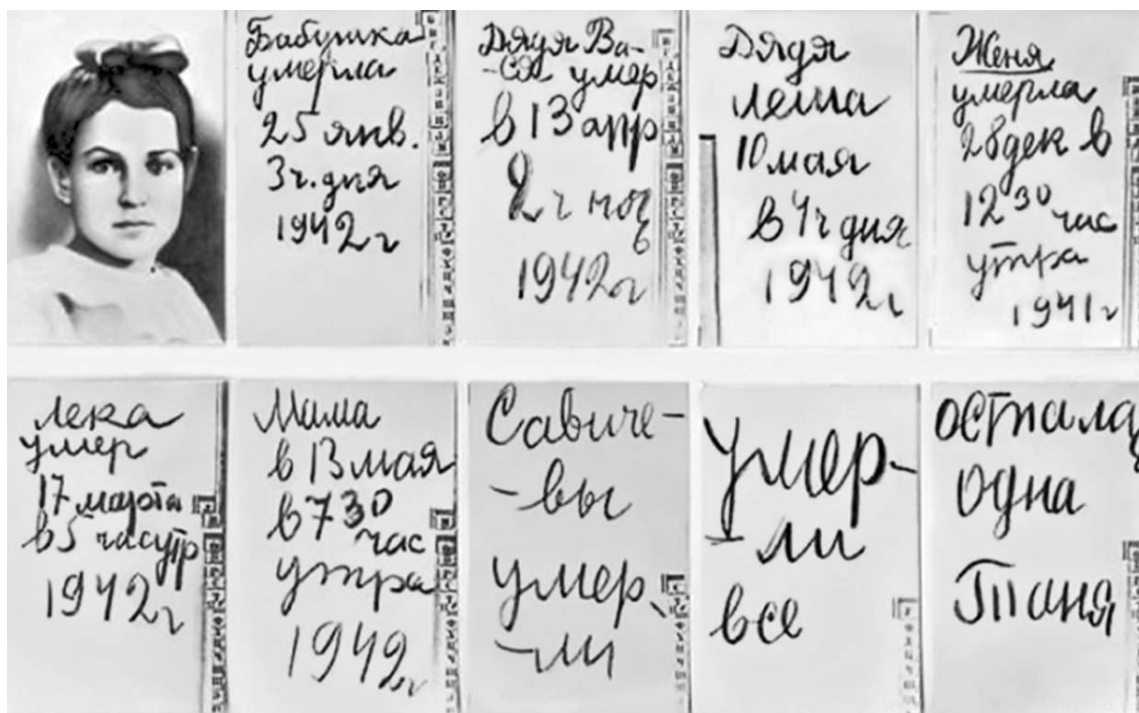 Бабушка
умерла
25 янв.
3 ч. дня
1942 г
Дядя Ва-
-ся умер
в 13 апр
2 ч ноч
ь
1942 г
Дядя
Леша
10 мая
в 4 ч дня
1942 г
Женя
умерла
28 дек в
12 30 час
утра
1941 г
Лека
умер
17 марта
в 5 час утр
1942 г
Мама
в 13 мая
в 7 30
час
утра
1942 г
Савиче-
-вы
умер-
-ли
Умер-
-ли
все
одна
Таня